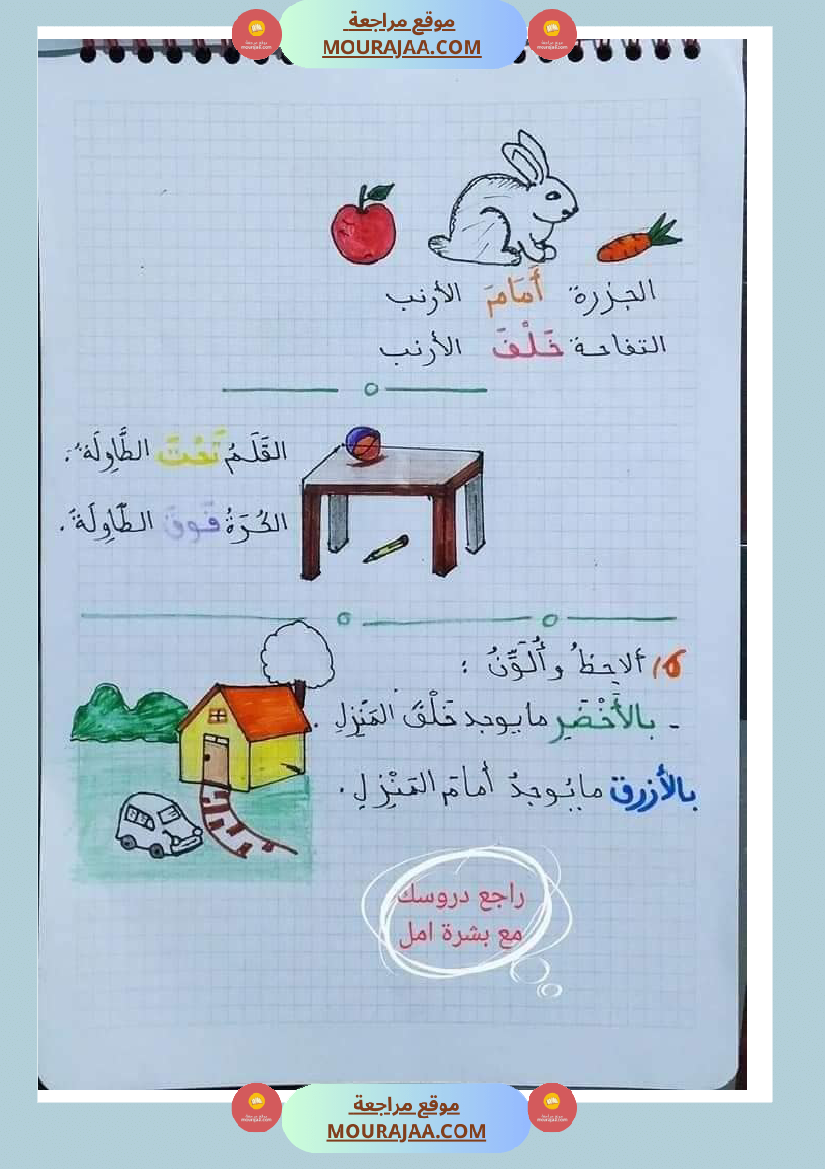 موقع مراجعة
MOURAJAA.COM
الجزرة أَمَامَ الأرنب
التفاحة خَلْفَ الأرنب
القَلَمُ تَحْتَ الطَّاوِلَةَ.
الكُرَةُ فَوقَ الطَّاوِلَةَ.
6/ ألاحِظُ وأُلَوِّنُ :
- بالأَخْضَرِ ما يوجد خَلْفَ المَنْزِلِ .
بالأزرق ما يُوجدُ أمامَ المَنْزِلِ .
راجع دروسك
مع بشرة امل
موقع مراجعة
MOURAJAA.COM